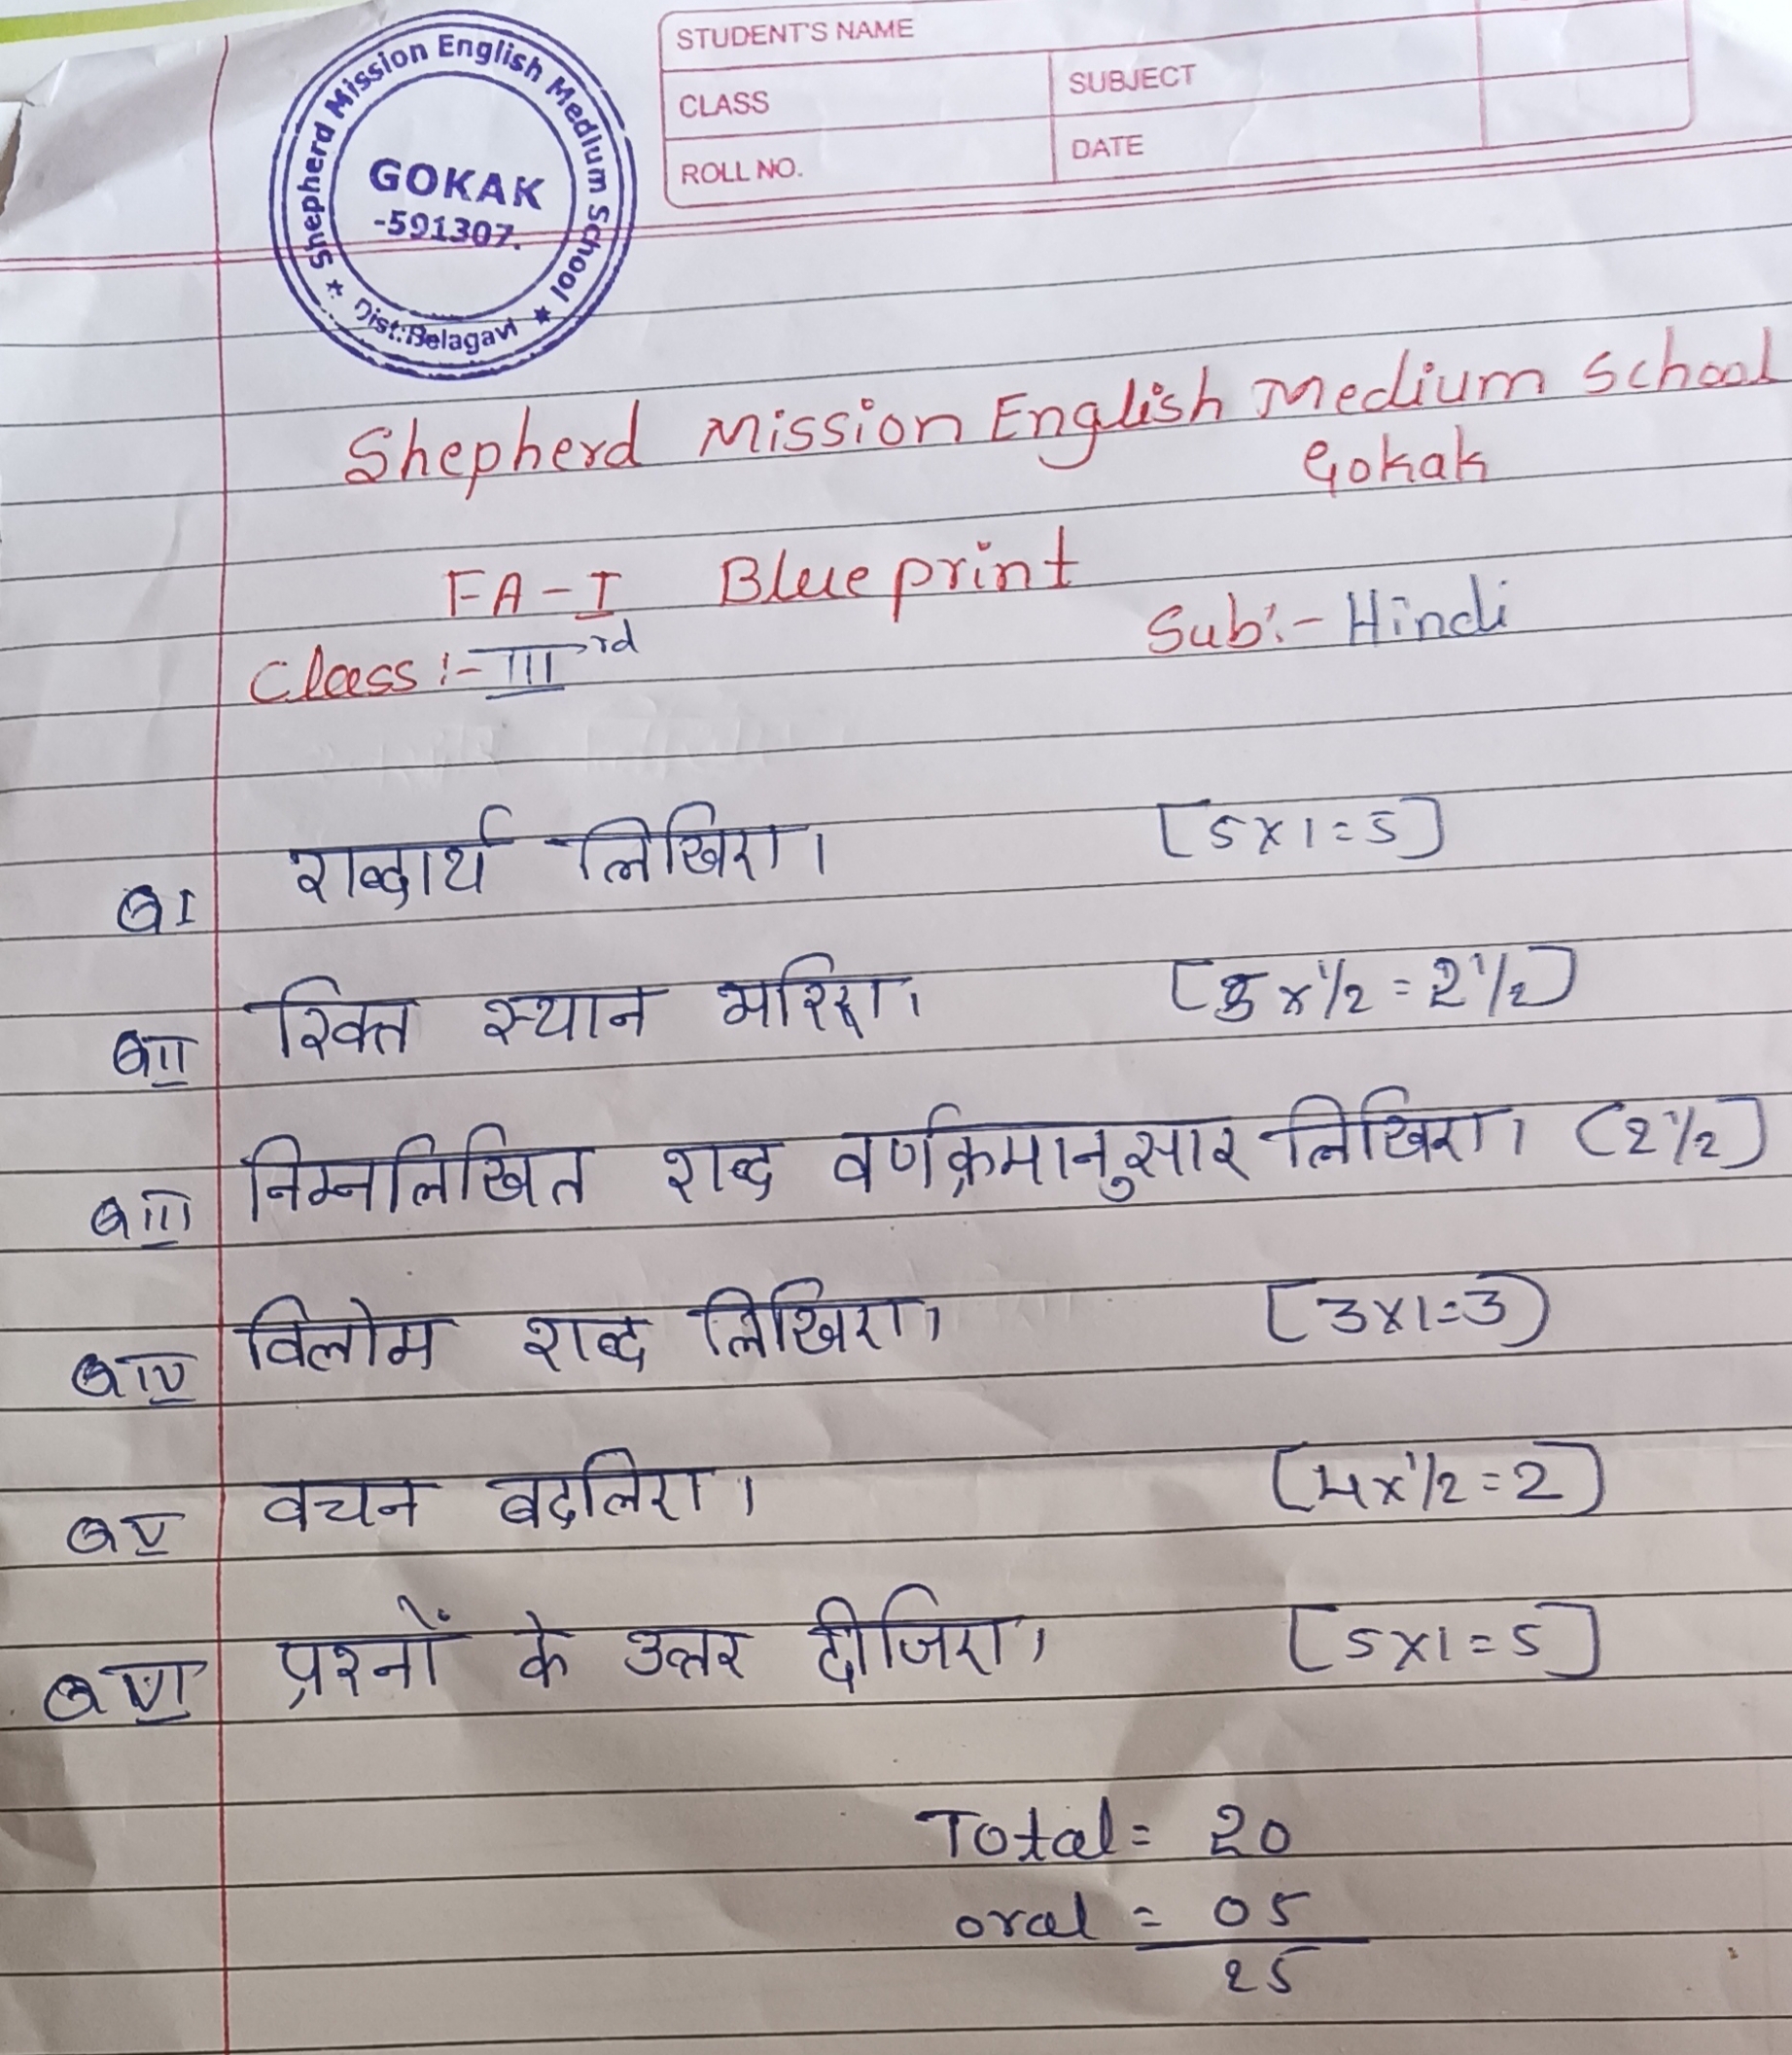 Shepherd Mission English Medium School
GOKAK
-591307.
Dist:Belagavi
STUDENT'S NAME
CLASS
SUBJECT
ROLL NO.
DATE
Shepherd Mission English Medium School
Gokak
FA-I Blueprint
Class :- IIIrd
Sub:- Hindi
QI शब्दार्थ लिखिए। [5x1=5]
QII रिक्त स्थान भरिए। [5x1/2=2 1/2]
QIII निम्नलिखित शब्द वर्णक्रमानुसार लिखिए। (2 1/2]
QIV विलोम शब्द लिखिए। [3x1=3)
QV वचन बदलिए। [4x1/2=2]
QVI प्रश्नों के उत्तर दीजिए। [5x1=5]
Total= 20
oral = 05
25